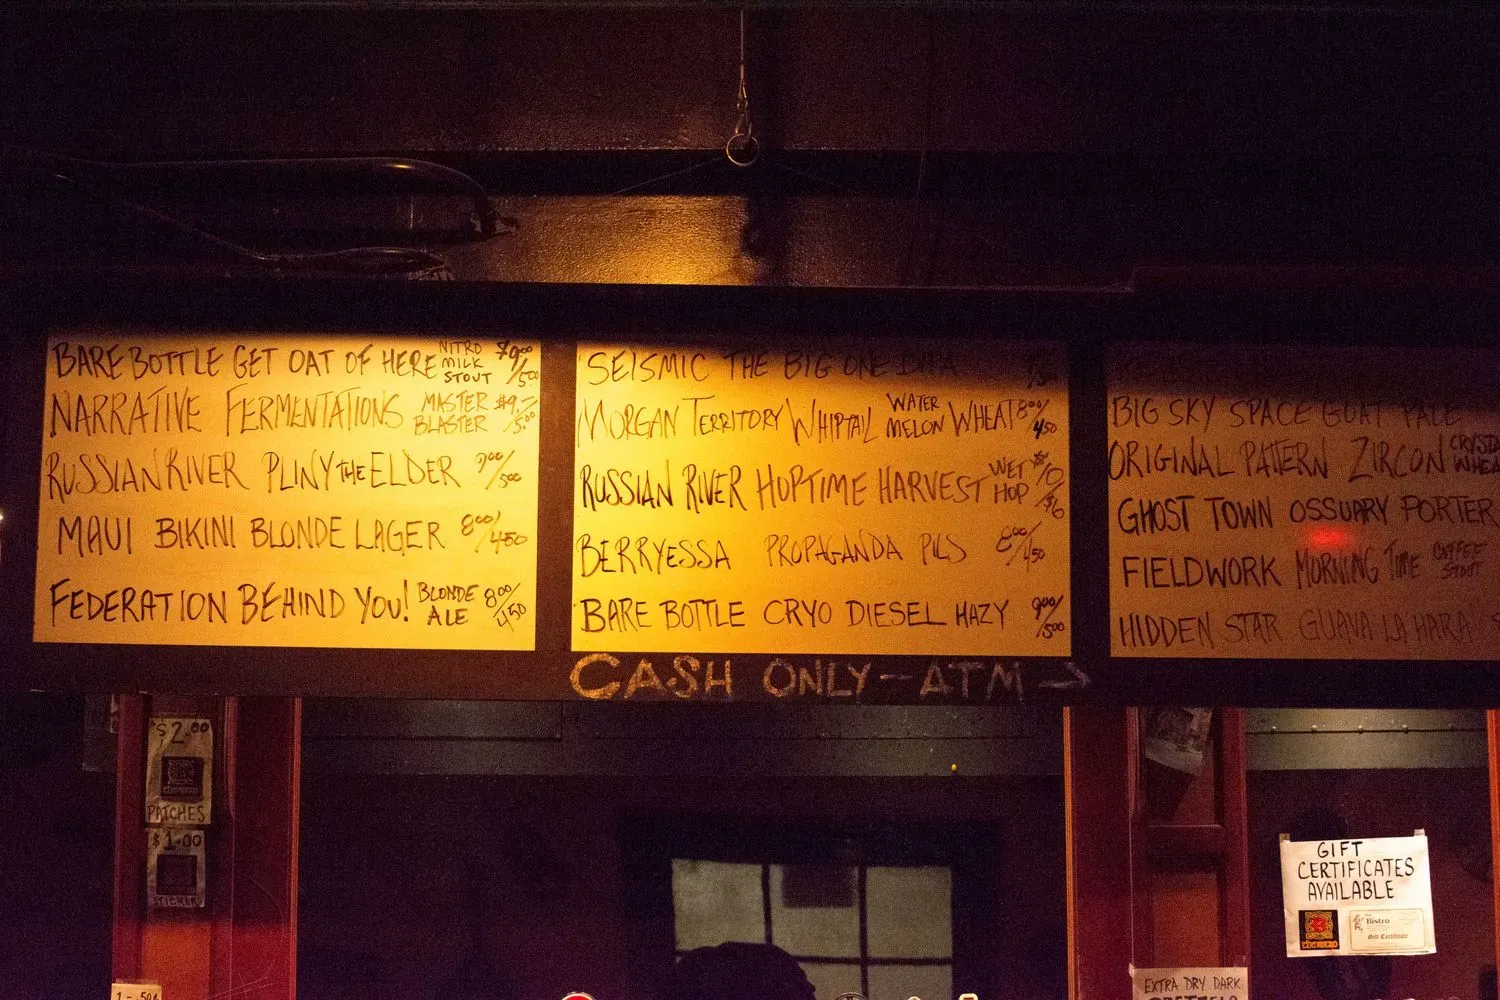 BARE BOTTLE GET OAT OF HERE NITRO MILK STOUT 9.00/5.00
NARRATIVE FERMENTATIONS MASTER BLASTER $9.-/5.00
RUSSIAN RIVER PLINY THE ELDER 9.00/5.00
MAUI BIKINI BLONDE LAGER 8.00/4.50
FEDERATION BEHIND YOU! BLONDE ALE 8.00/4.50
SEISMIC THE BIG ONE
MORGAN TERRITORY WHIPTAIL WATER MELON WHEAT 8.00/4.50
RUSSIAN RIVER HOPTIME HARVEST WET HOP $10/$6
BERRYESSA PROPAGANDA PILS 8.00/4.50
BARE BOTTLE CRYO DIESEL HAZY 9.00/5.00
BIG SKY SPACE GOAT PALE
ORIGINAL PATTERN ZIRCON
GHOST TOWN OSSUARY PORTER
FIELDWORK MORNING TIME COFFEE STOUT
HIDDEN STAR GUAVA LA HARA
CASH ONLY - ATM →
$2.00
PATCHES
$1.00
STICKER
GIFT
CERTIFICATES
AVAILABLE
Bistro
Gift Certificate
EXTRA DRY DARK